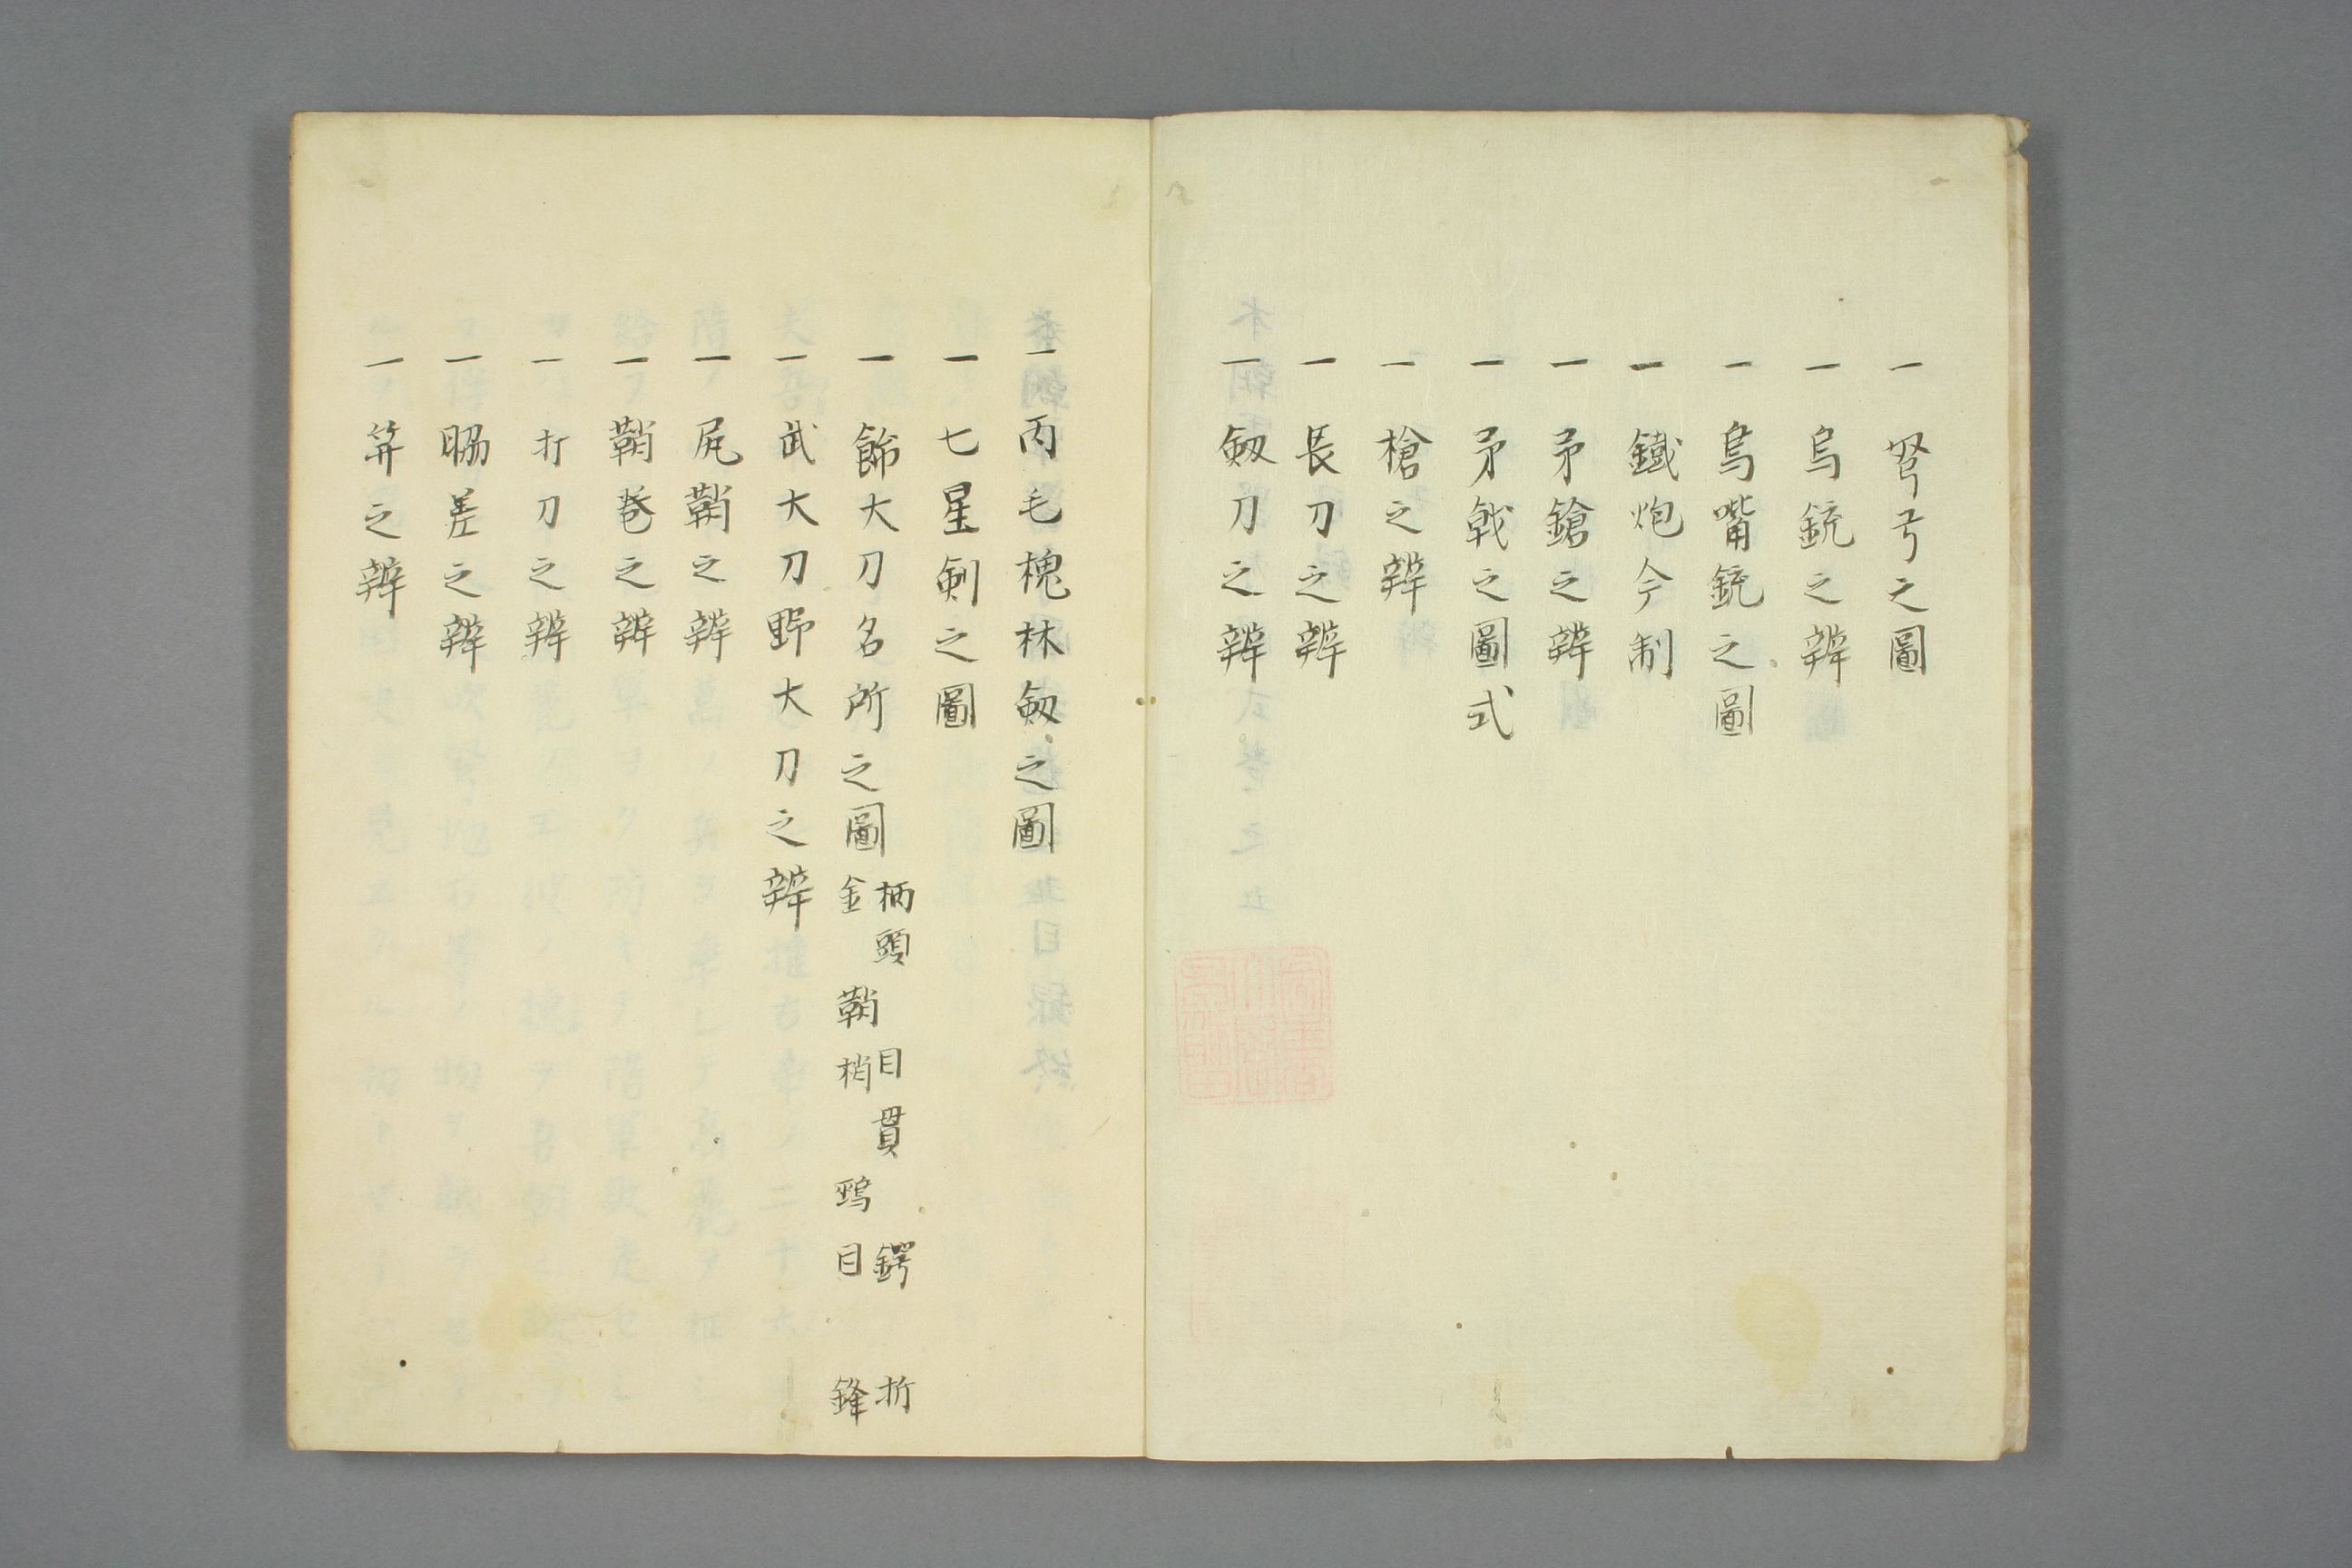 一 弩弓之圖
一 鳥銃之辨
一 鳥嘴銃之圖
一 鐵炮今制
一 矛鎗之辨
一 矛戟之圖式
一 槍之辨
一 長刀之辨
一 劔刀之辨
一 丙毛槐林劔之圖
一 七星剣之圖
一 餝大刀名所之圖
柄頭 目貫 鍔 折
金 鞘 梢 鵐目 鋒
一 武大刀野大刀之辨
一 尻鞘之辨
一 鞘巻之辨
一 打刀之辨
一 脇差之辨
一 笄之辨